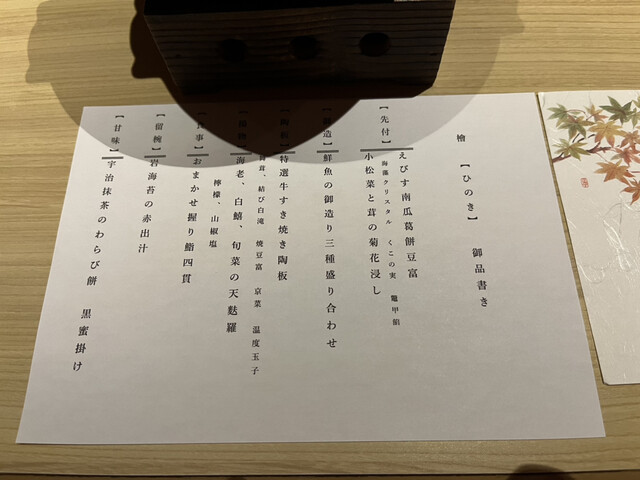 檜 【ひのき】 御品書き
【先付】えびす南瓜葛餅豆富
海藻クリスタル くこの実 鼈甲餡
小松菜と茸の菊花浸し
【造】鮮魚の御造り三種盛り合わせ
特選牛すき焼き陶板
茸、結び白滝 焼豆富 京菜 温度玉子
海老、白鱚、旬菜の天麩羅
檸檬、山椒塩
【食事】おまかせ握り鮨四貫
【留椀】岩海苔の赤出汁
【甘味】宇治抹茶のわらび餅 黒蜜掛け